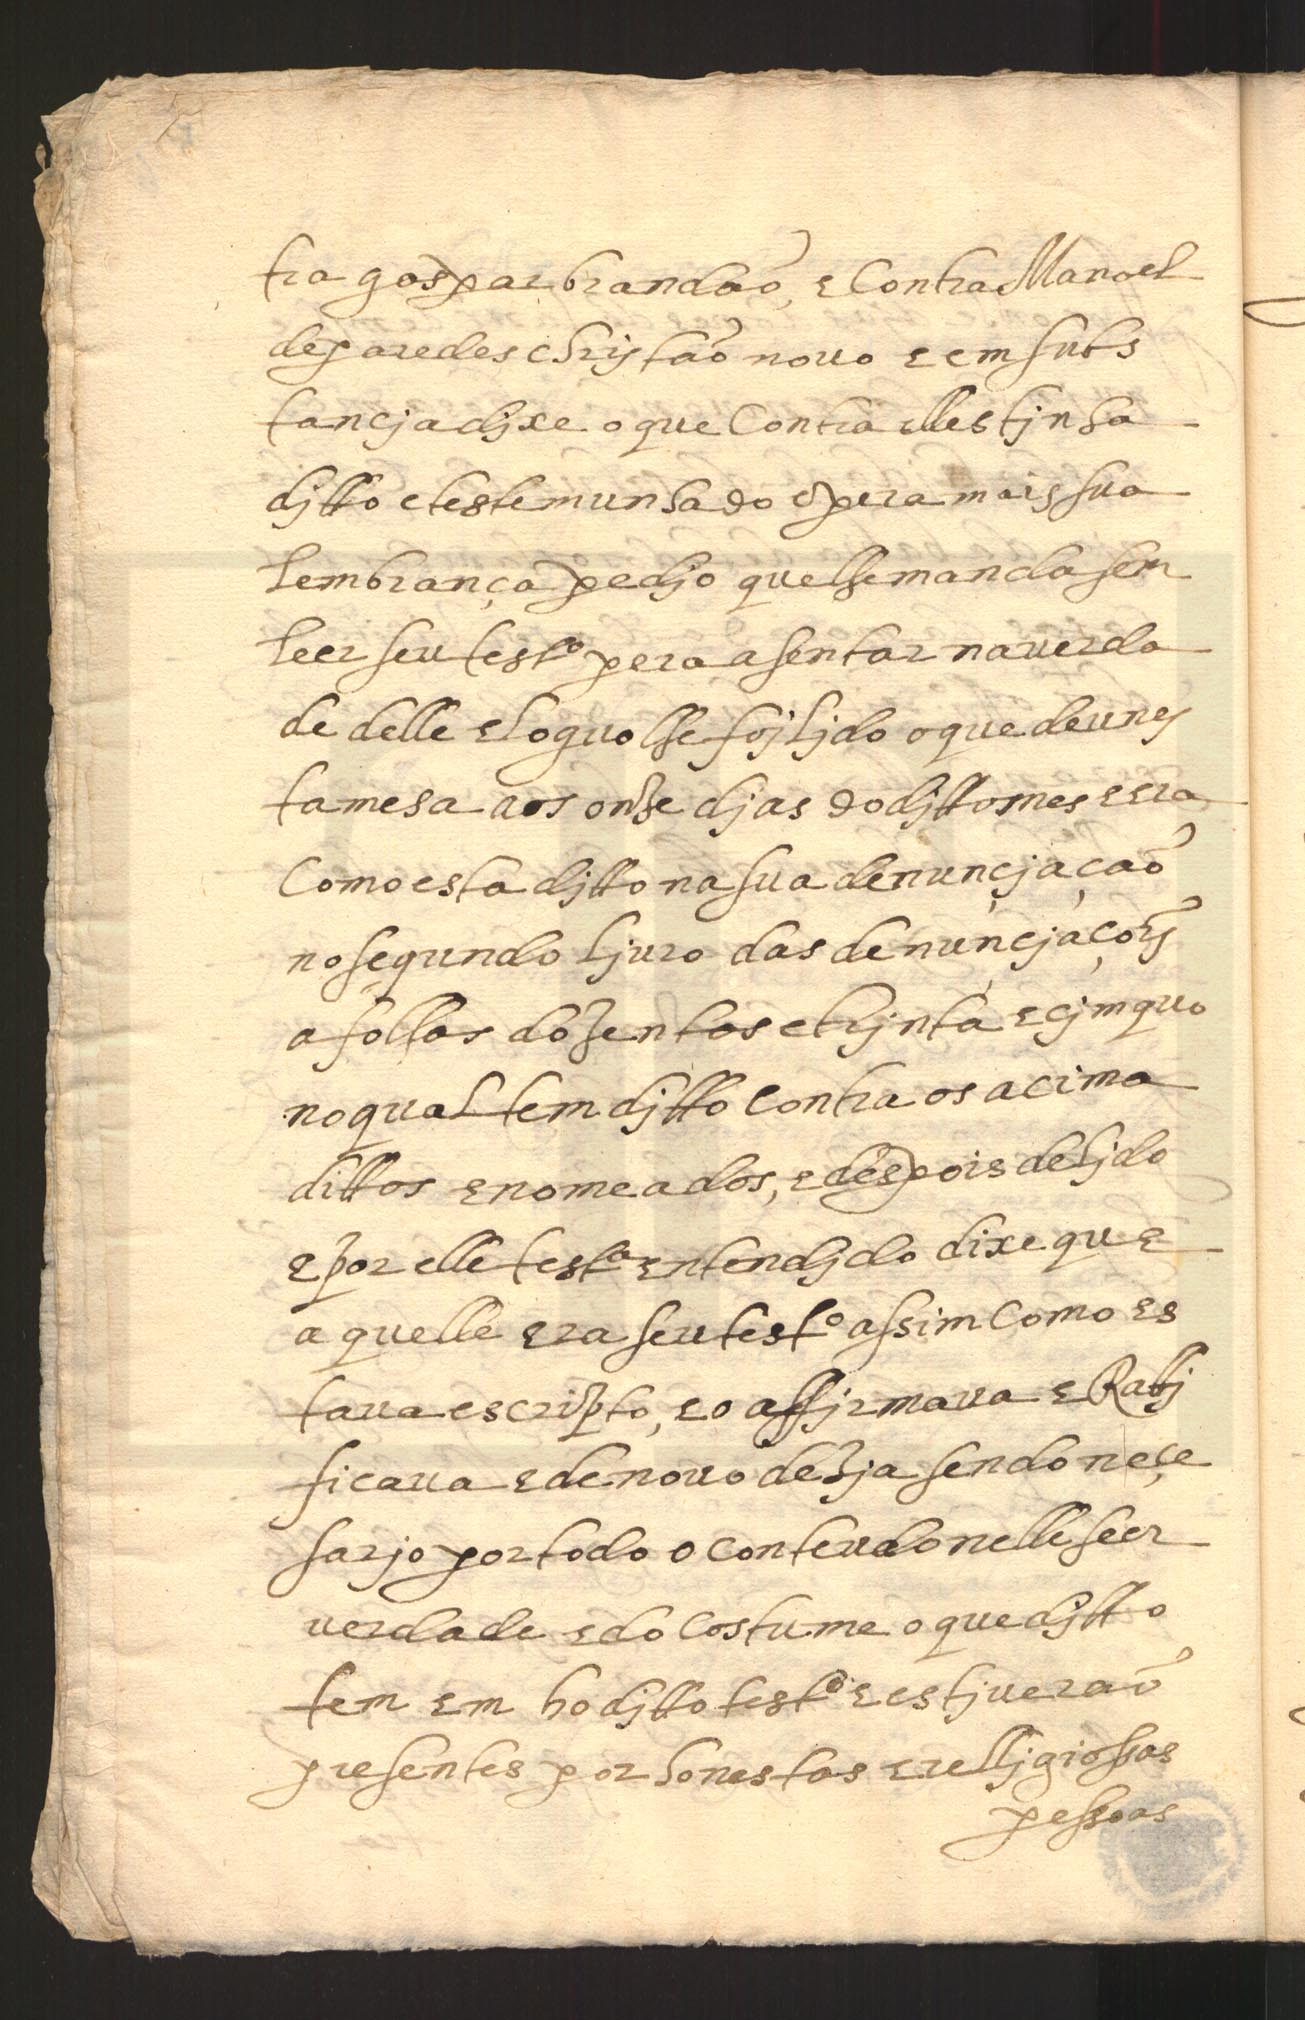 tra gospar brandaõ, e Contra Manoel
de paredes christaõ novo e em subs
tancja djxe o que Contra elles tjnha
djtto e testemunhado e pera mais sua
lembrança pedjo que lhe mandasem
leer seu test.º pera asentar na verda
de delle e loguo lhe foj ljdo o que deu nes
ta mesa aos onze djas do djtto mes e era
Como esta djtto na sua denunçjaçaõ
no segundo ljuro das denunçjaçoẽs
a folhas dozentos e trjnta e cjmquo
no qual tem djtto Contra os acima
dittos e nomeados, e despois de ljdo
e por elle test.ª entendjdo dixe que
aquelle era seu test.º assim Como es
taua escripto, e o affjrmaua e Ratj
ficaua e de nouo dezja sendo neçe
sarjo por todo o conteudo nelle seer
verdade e do Costume o que djtto
tem em ho djtto test.º e estjueraõ
presentes por honestas e relljgiossas
pessoas